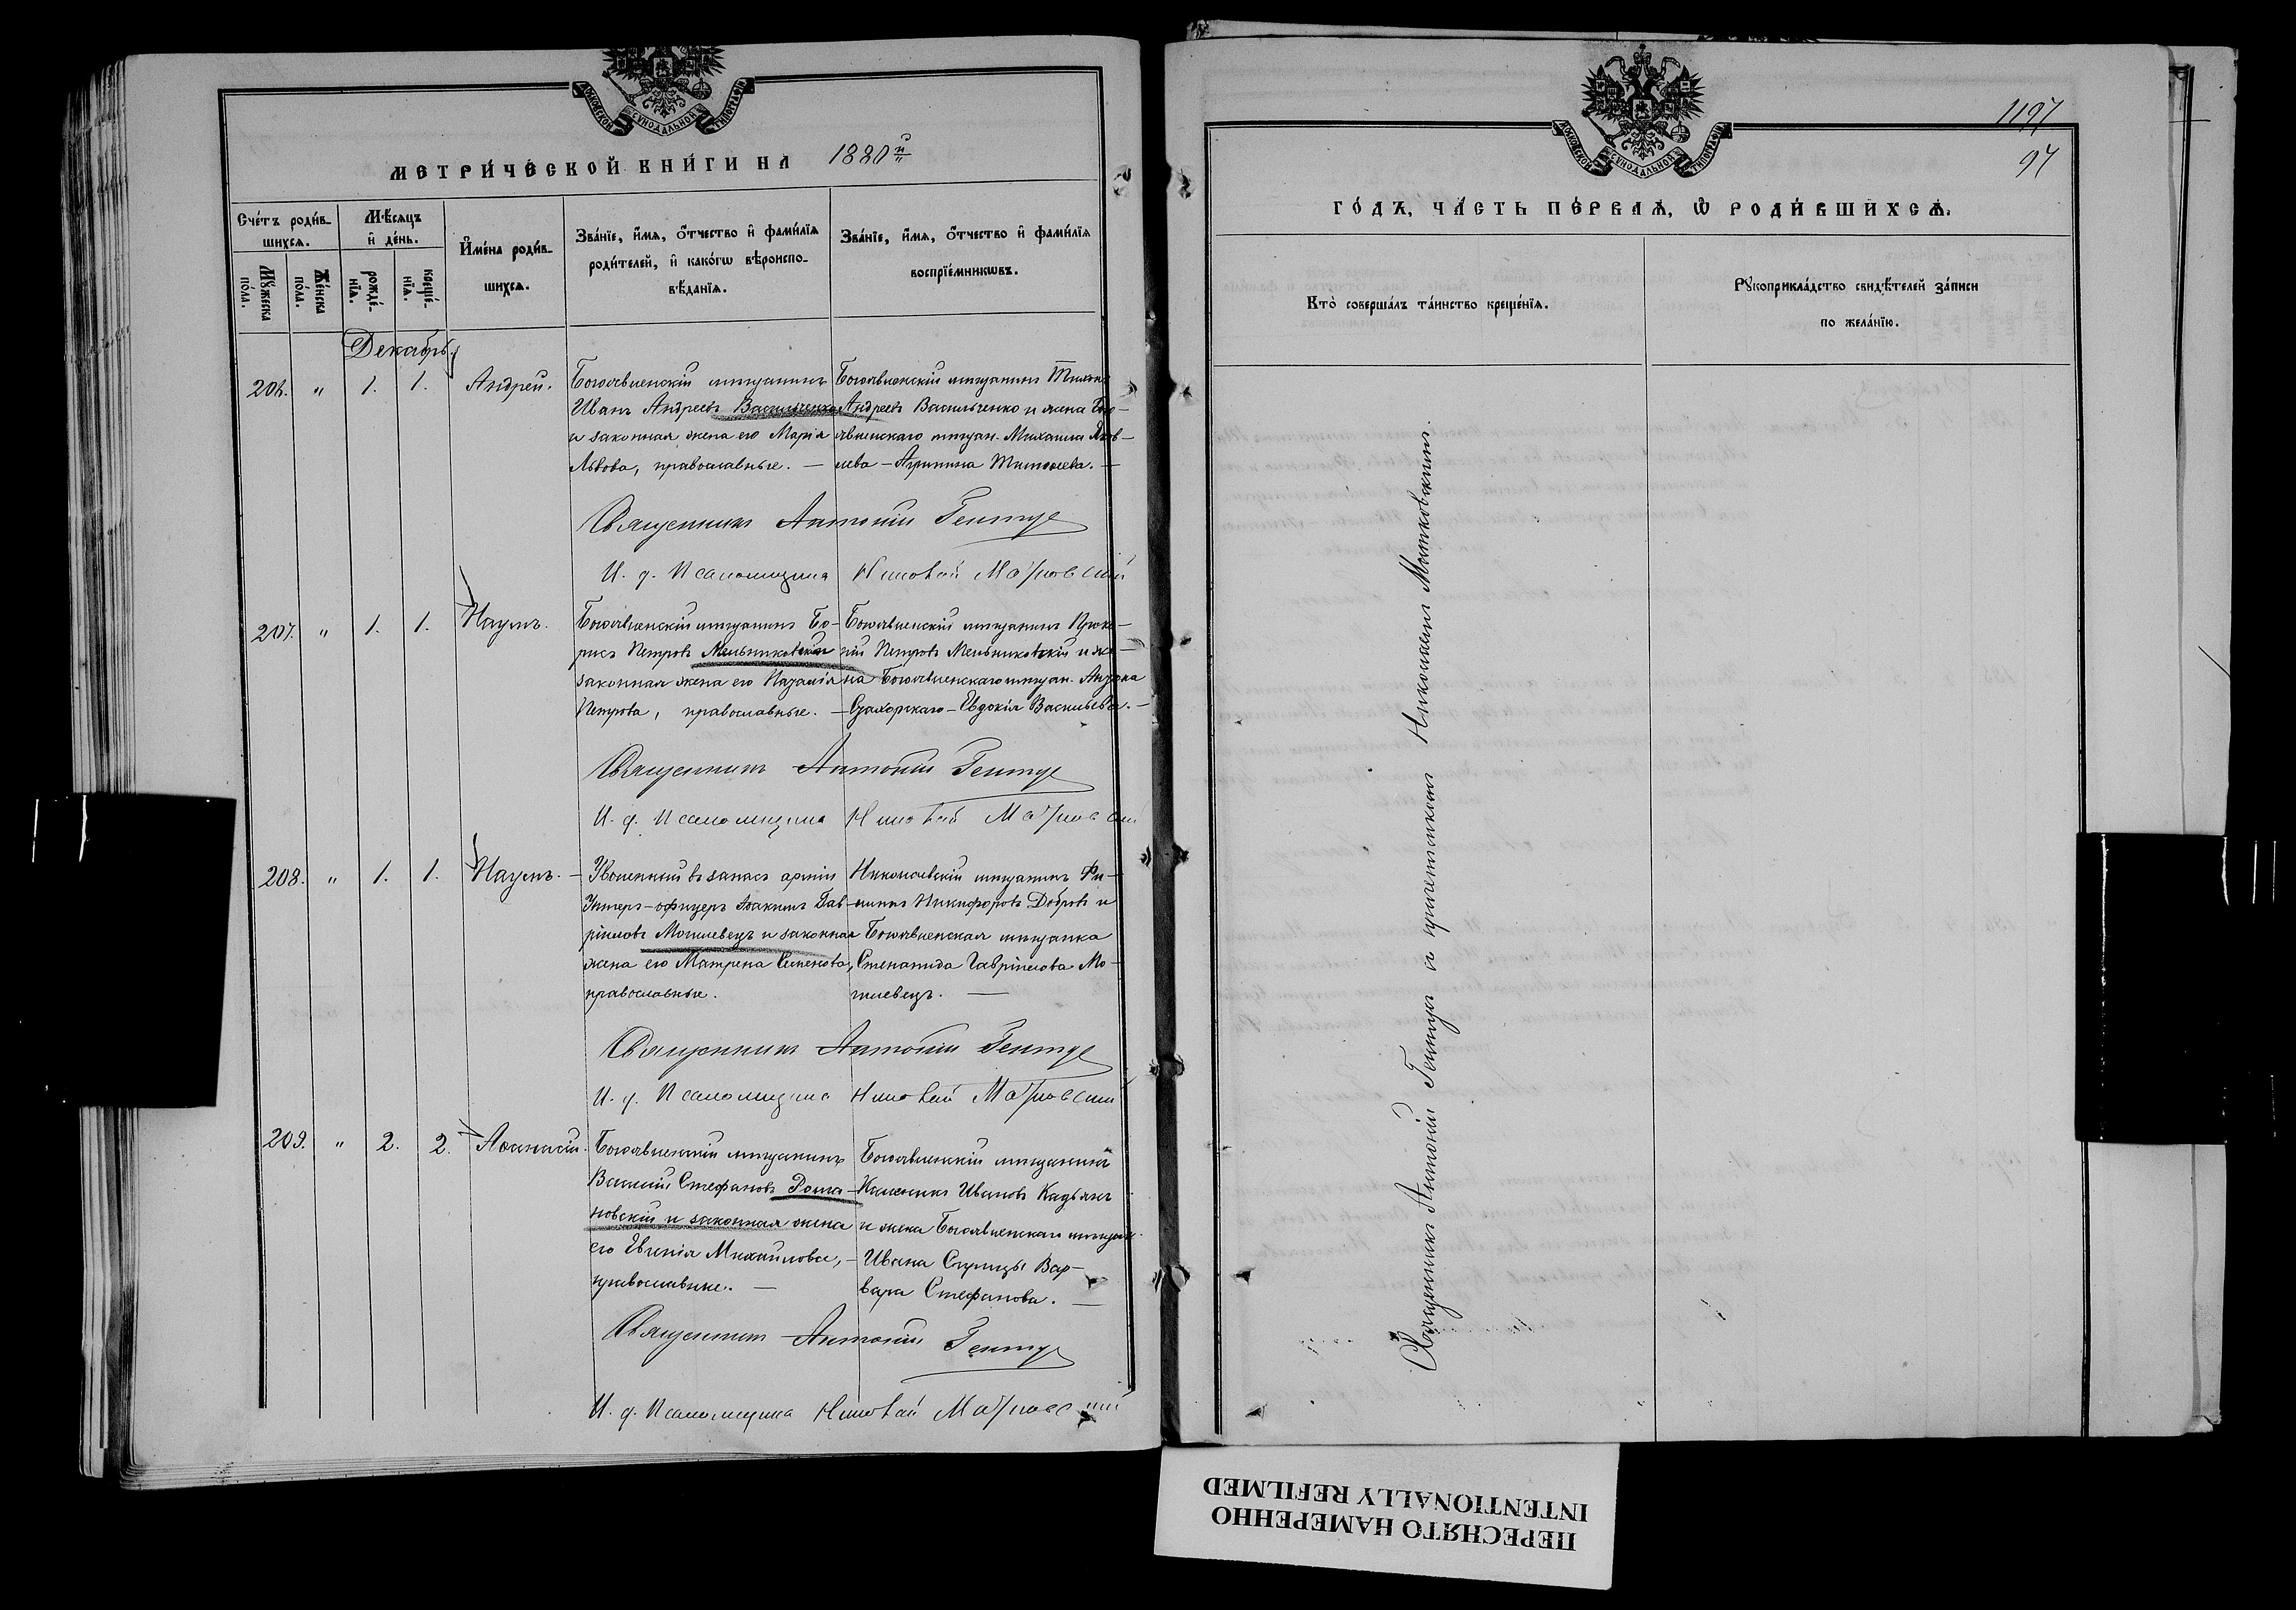 МОСКОВСКОЙ СУНОДАЛЬНОЙ ТИПОГРАФІИ
МЕТРИ́ЧЕСКОЙ КНИ́ГИ НА 1880й
Сче́тъ роди́в-
шихсѧ.
Мѣ́сѧцъ
и҆ де́нь.
И҆мена̀ роди́в-
шихсѧ.
Зва́нїе, и҆́мѧ, ѻ҆́тчество и҆ фами́лїѧ
роди́телей, и҆ како́гѡ вѣроиспо-
вѣ́данїѧ.
Зва́нїе, и҆́мѧ, ѻ҆́тчество и҆ фами́лїѧ
воспрїе́мникѡвъ.
Мꙋ́жеска
по́ла.
Же́нска
по́ла.
рожде́-
нїѧ.
креще́-
нїѧ.
Декабрь.
206. " 1. 1. Андрей.
Богоявленскій мѣщанинъ
Иванъ Андреевъ Васильченко
и законная жена его Марія
Львова, православные. —
Богоявленскій мѣщанинъ Тихонъ
Андреевъ Васильченко и жена Бого-
явленскаго мѣщан. Михаила Яков-
лева - Агрипина Тимофеева. —
Священникъ Антоній Гентуе
И. д. Псаломщика Николай
207. " 1. 1. Наумъ.
Богоявленскій мѣщанинъ Бо-
рисъ Петровъ Мельниковскій
законная жена его Наталія
Петрова, православные. —
Богоявленскій мѣщанинъ Проко-
пій Петровъ Мельниковскій и же-
на Богоявленскаго мѣщан.
Евдокія Васильева. —
Священникъ Антоній Гентуе
И. д. Псаломщика Николай
208. " 1. 1. Наумъ. —
Уволенный въ запасъ арміи
Унтеръ-офицеръ Іоакимъ Гав-
ріиловъ Могилевецъ и законная
жена его Матрена Семенова,
православные.
Николаевскій мѣщанинъ Фи-
липпъ Никифоровъ Добровъ и
Богоявленская мѣщанка
Степанида Гавріилова Мо-
гилевецъ. —
Священникъ Антоній Гентуе
И. д. Псаломщика Николай
209. " 2. 2. Аѳанасій.
Богоявленскій мѣщанинъ
Василій Стефановъ Рома-
новскій и законная жена
его Евгенія Михайлова, —
православные. —
Богоявленскій мѣщанинъ
Каленикъ Ивановъ Кадьянъ
и жена Богоявленскаго мѣщан.
Ивана Вар-
вара Стефанова. —
Священникъ Антоній Гентуе
И. д. Псаломщика Николай
1197
97
МОСКОВСКОЙ СУНОДАЛЬНОЙ ТИПОГРАФІИ
ГО́ДЪ, ЧА́СТЬ ПЕ́РВАѦ, Ѡ҆ РОДИ́ВШИХСѦ.
Кто̀ соверша́лъ та́инство креще́нїѧ.
Рꙋкоприкла́дство свидѣ́телей за́писи
по жела́нїю.
Священникъ Антоній Гентуе съ причетникомъ Николаемъ
ПЕРЕСНЯТО НАМЕРЕННО
INTENTIONALLY REFILMED